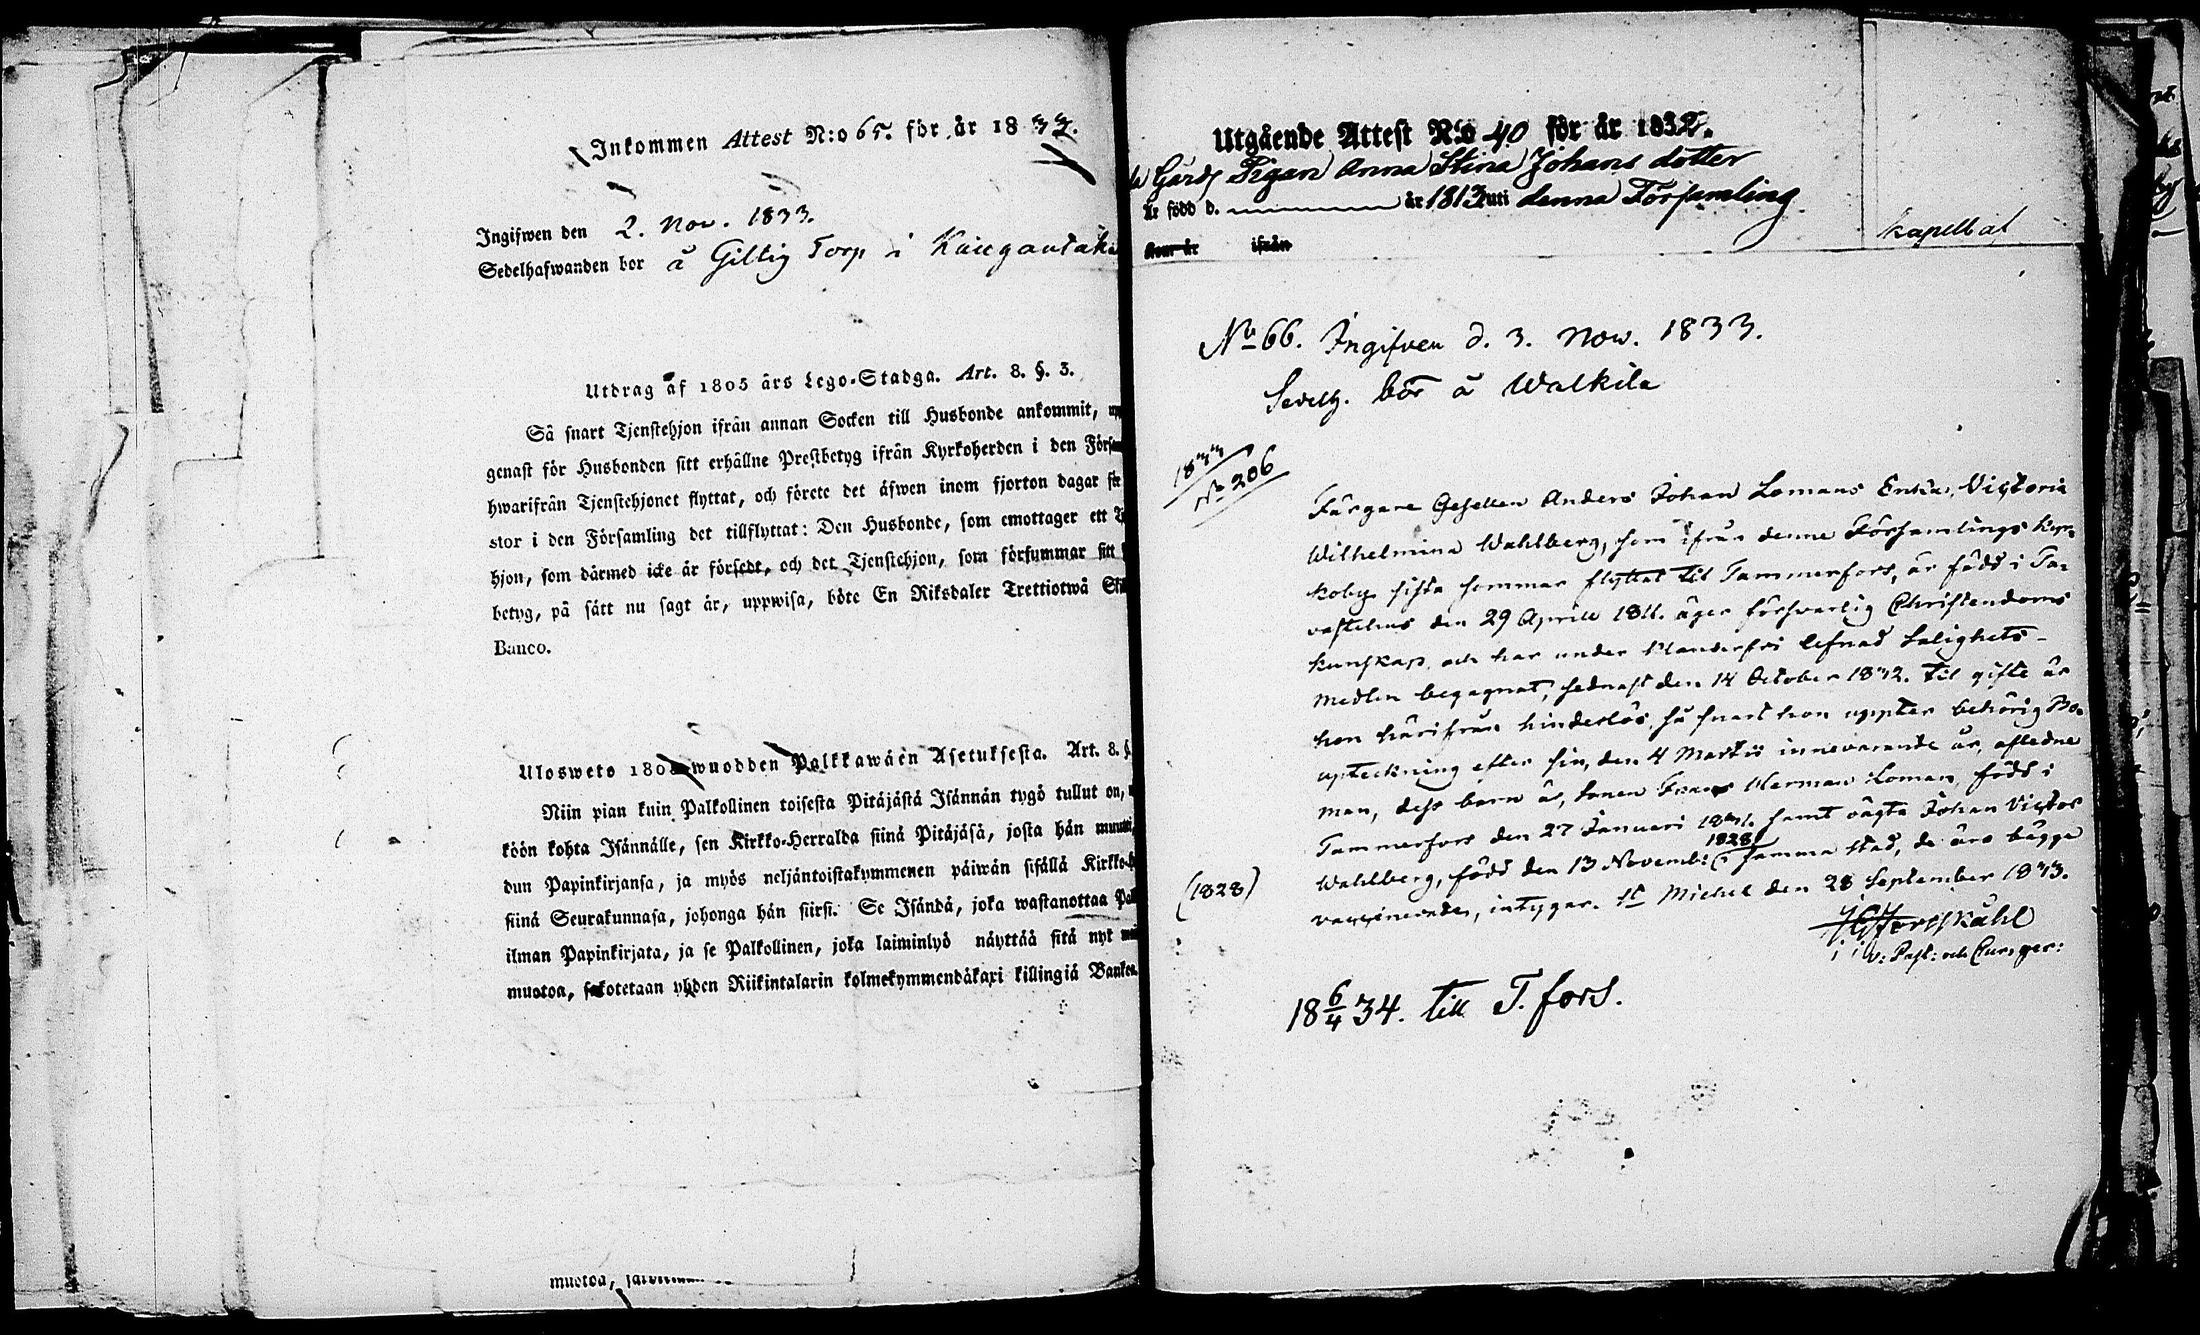 Inkommen Attest N:o 65. för år 1833.
Ingifwen den 2. Nov. 1833.
Sedelhafwanden bor å Gillig Torp i
Utdrag af 1805 års Lego-Stadga. Art. 8. §. 3.
Så snart Tjenstehjon ifrån annan Socken till Husbonde ankommit,
genast för Husbonden sitt erhållne Prestbetyg ifrån Kyrkoherden i den
hwarifrån Tjenstehjonet flyttat, och förete det äfwen inom fjorton dagar
stor i den Församling det tillflyttat: Den Husbonde, som emottager ett
hjon, som därmed icke är försedt, och det Tjenstehjon, som försummar sitt
betyg, på sätt nu sagt är, uppwisa, böte En Riksdaler Trettiotwå
Banco.
Ulosweto wuodden Palkkawäén Asetuksesta. Art. 8. §
Niin pian kuin Palkollinen toisesta Pitäjästä Isännän tygö tullut on,
köön kohta Isännälle, sen Kirkko-Herralda siinä Pitäjäsä, josta hän
dun Papinkirjansa, ja myös neljäntoistakymmenen päiwän sisällä
siinä Seurakunnasa, johonga hän siirsi. Se Isändä, joka wastanottaa
ilman Papinkirjata, ja se Palkollinen, joka laiminlyö näyttää sitä nyt
muotoa, sakotetaan yhden Riikintalarin kolmekymmendäkaxi killingiä
muotoa,
Utgående Attest N:o 40 för år 1832.
Gårds Pigan Anna Stina Johans dotter
Är född d. år 1813 uti denna Församling
Kom år ifrån
kapell af
No 66. Ingifven d. 3. Nov. 1833.
Sedelh. bor å Walkila
1833
No 206
Färgare Gesellen Anders Johan Lomans Enka, Victoria
Wilhelmina Wahlberg, som ifrån denna Församlings Kyr-
koby sista sommar flyttat til Tammerfors, är född i Ta-
vastehus den 29 Aprill 1811. äger försvarlig Christendoms
kunskap, och har under klanderfri lefnad Salighets-
medlen begagnat, sednast den 14 October 1832. Til gifte är
hon härifrån hinderlös, så snart hon uppter behörig Bo-
upteckning efter sin, den 4 Martii innevarande år, afledne
man, dess barn är, sonen Frans Herman Loman, född i
Tammerfors den 27 Januari samt oägta Johan Victor
1828
Wahlberg, född den 13 Novemb: i samma stad, de äro bägge
(1828)
vaccinerade, intygar. St Michel den 28 September 1833.
Forsskåhl
v: Past: och
18 6/4 34. till T.fors.